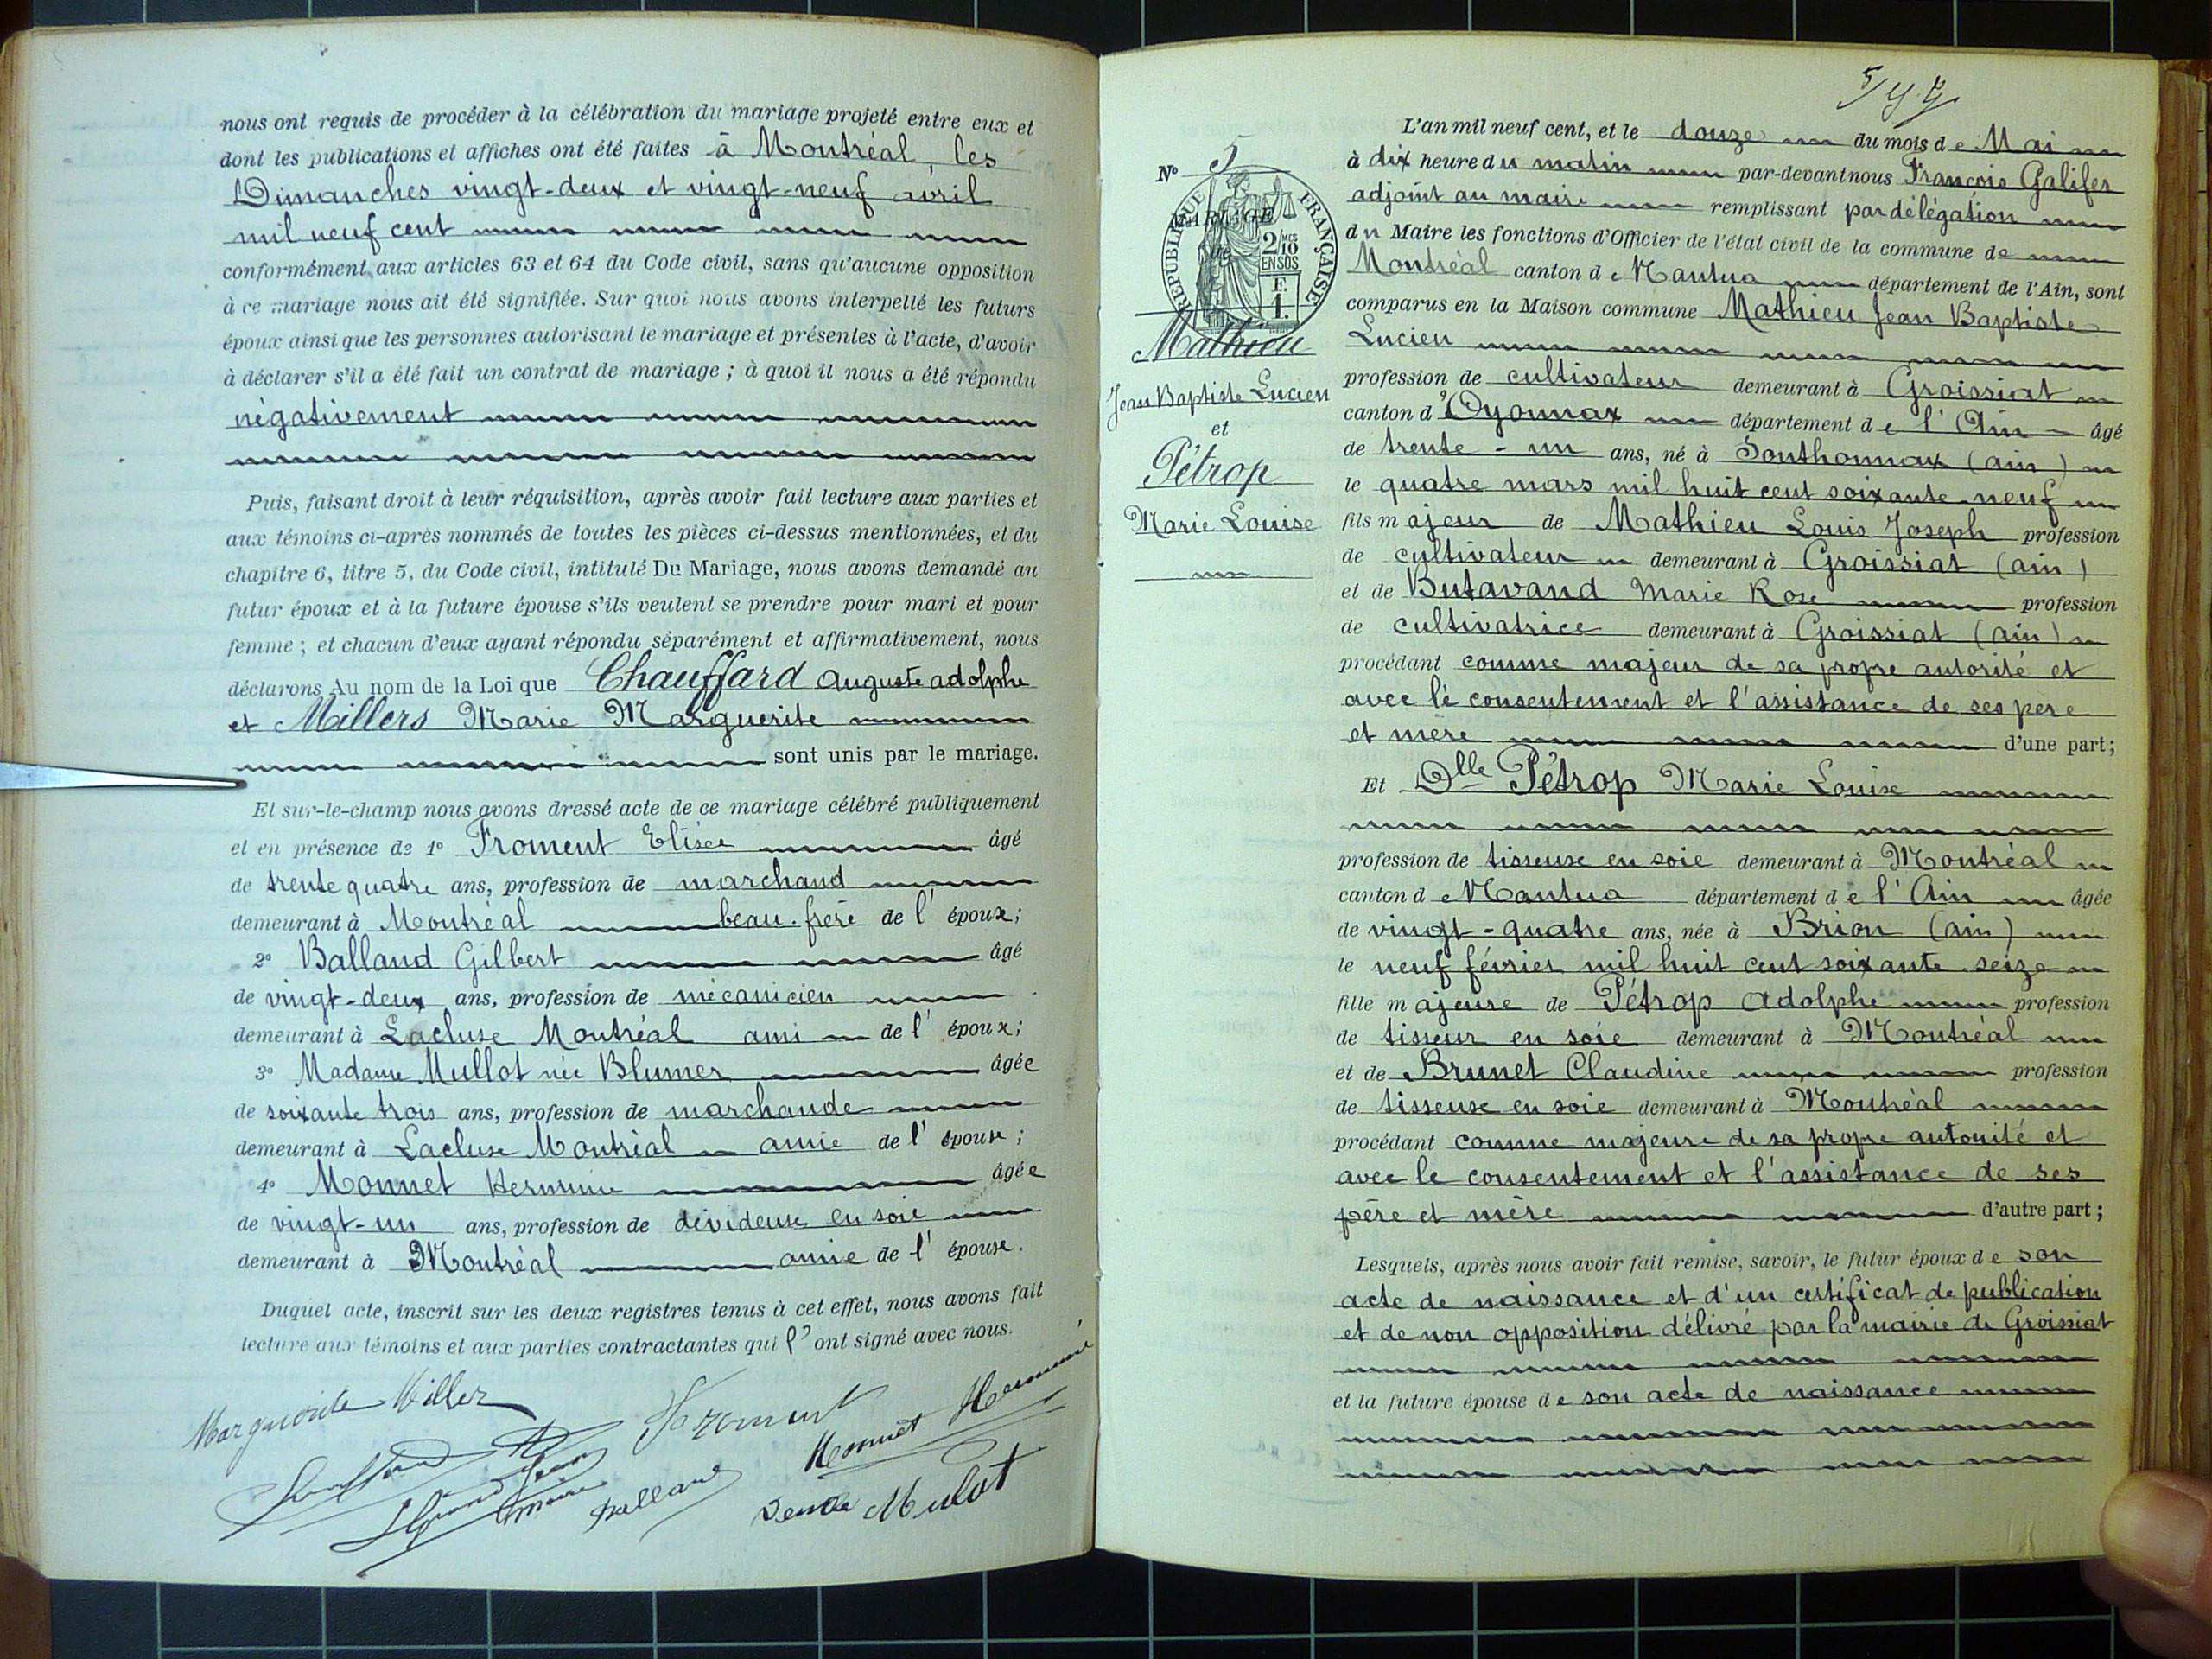 nous ont requis de procéder à la célébration du mariage projeté entre eux et
dont les publications et affiches ont été faites à Montréal, les
Dimanches vingt-deux et vingt-neuf avril
mil neuf cent
conformément aux articles 63 et 64 du Code civil, sans qu'aucune opposition
à ce mariage nous ait été signifiée. Sur quoi nous avons interpellé les futurs
époux ainsi que les personnes autorisant le mariage et présentes à l'acte, d'avoir
à déclarer s'il a été fait un contrat de mariage ; à quoi il nous a été répondu
négativement
Puis, faisant droit à leur réquisition, après avoir fait lecture aux parties et
aux témoins ci-après nommés de toutes les pièces ci-dessus mentionnées, et du
chapitre 6, titre 5, du Code civil, intitulé Du Mariage, nous avons demandé au
futur époux et à la future épouse s'ils veulent se prendre pour mari et pour
femme ; et chacun d'eux ayant répondu séparément et affirmativement, nous
déclarons Au nom de la Loi que Chauffard Auguste Adolphe
et Millers Marie Marguerite
sont unis par le mariage.
Et sur-le-champ nous avons dressé acte de ce mariage célébré publiquement
et en présence de 1° Froment Elisée âgé
de trente quatre ans, profession de marchand
demeurant à Montréal beau-frère de l'époux;
2° Balland Gilbert âgé
de vingt-deux ans, profession de mécanicien
demeurant à Lacluse Montréal ami de l'époux;
3° Madame Mullot née Blumer âgée
de soixante trois ans, profession de marchande
demeurant à Lacluse Montréal amie de l'épouse;
4° Monnet Hermine âgée
de vingt-un ans, profession de dévideuse en soie
demeurant à Montréal amie de l'épouse.
Duquel acte, inscrit sur les deux registres tenus à cet effet, nous avons fait
lecture aux témoins et aux parties contractantes qui l'ont signé avec nous.
Marguerite Miller
Froment
Monnet Hermine
Balland
Mulot
N° 5
MARIAGE
de
RÉPUBLIQUE FRANÇAISE
2/10
EN SUS
Mathieu
Jean Baptiste Lucien
et
Pétrop
Marie Louise
L'an mil neuf cent, et le douze du mois de Mai
à dix heure du matin par-devant nous François Galifer
adjoint au maire remplissant par délégation
du Maire les fonctions d'Officier de l'état civil de la commune de
Montréal canton de Nantua département de l'Ain, sont
comparus en la Maison commune Mathieu Jean Baptiste
Lucien
profession de cultivateur demeurant à Groissiat
canton d'Oyonnax département de l'Ain âgé
de trente-un ans, né à Sonthonnax (ain)
le quatre mars mil huit cent soixante-neuf
fils majeur de Mathieu Louis Joseph profession
de cultivateur demeurant à Groissiat (ain)
et de Butavand Marie Rose profession
de cultivatrice demeurant à Groissiat (ain)
procédant comme majeur de sa propre autorité et
avec le consentement et l'assistance de ses père
et mère d'une part;
Et Dlle Pétrop Marie Louise
profession de tisseuse en soie demeurant à Montréal
canton de Nantua département de l'Ain âgée
de vingt-quatre ans, née à Brion (ain)
le neuf février mil huit cent soixante seize
fille majeure de Pétrop Adolphe profession
de tisseur en soie demeurant à Montréal
et de Brunet Claudine profession
de tisseuse en soie demeurant à Montréal
procédant comme majeure de sa propre autorité et
avec le consentement et l'assistance de ses
père et mère d'autre part;
Lesquels, après nous avoir fait remise, savoir, le futur époux de son
acte de naissance et d'un certificat de publication
et de non opposition délivré par la mairie de Groissiat
et la future épouse de son acte de naissance